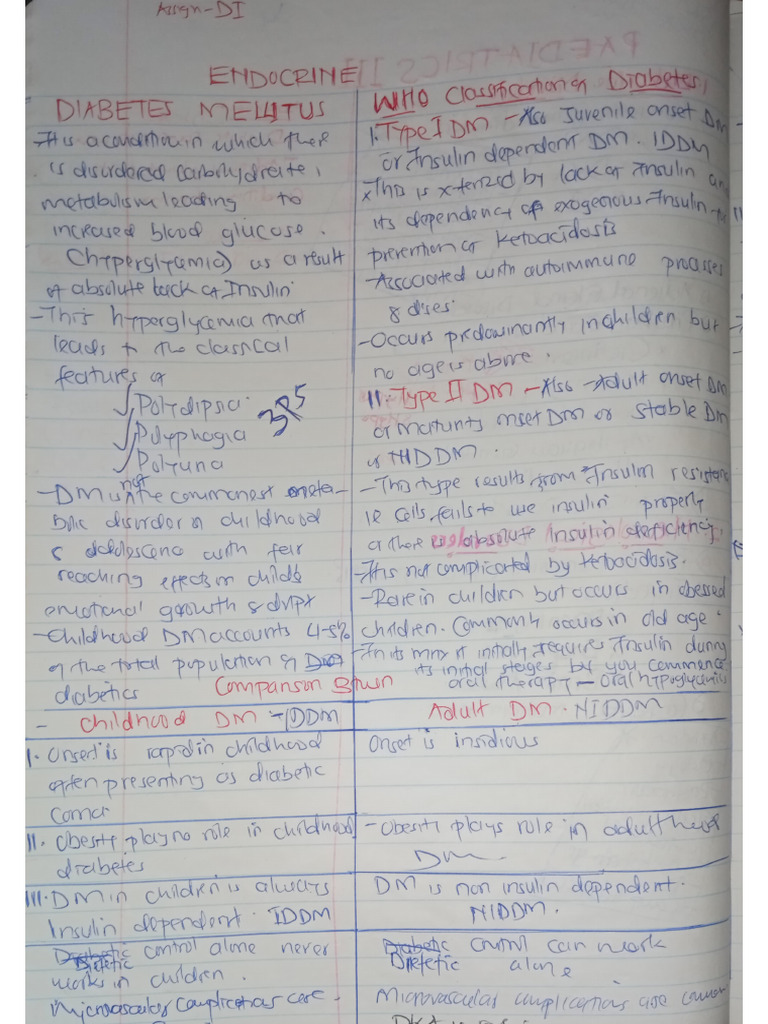 Assgn-DI
ENDOCRINE
DIABETES MELLITUS
-It is a condition in which ther
is disordered carbohydrate
metabolism leading to
increased blood glucose.
(hyperglycamia) as a result
of absolute lack of Insulin
-This hyperglycamia that
leads to the classical
features of
Polydipsia
Polyphagia
Polyuria
385
not
-DM is the commonest meta-
bolic disorder in childhood
& adolescence with far
reaching effects on childs
emotional growth & dvpt
-Childhood DM accounts 4-5%
of the total population of
diabetics
WHO Classification of Diabetes
I. Type I DM - Also Juvenile onset DM
or Insulin dependent DM. IDDM
xThis is xterized by lack of Insulin an
its dependency of exogenous Insulin
prevention of Ketoacidosis
-Associated with autoimmune processes
& dises.
-Occurs predominantly in children but
no age is above.
II. Type II DM - Also - Adult onset DM
or maturity onset DM or Stable DM
-This type results from Insulin resistanc
ie cells fails to use insulin properly
absolute Insulin deficiency.
-It is not complicated by Ketoacidosis.
-Rare in children but occurs in obessed
children. Commonly occurs in old age.
-In its mnx it initially requires Insulin during
its initial stages by you commence
oral therapy - oral hypoglycamic
Comparison Btwn
- Childhood DM - IDDM
Adult DM. NIDDM
I. Onset is rapid in childhood
often presenting as diabetic
coma
Onset is insidious
II. Obesity play no role in childhood
diabetes
- Obesity plays role in adulthood
DM
III. DM in children is always
Insulin dependent. IDDM
DM is non insulin dependent.
NIDDM.
Dietetic control alone never
works in children.
Dietetic control can work
alone
Microvascular Complications are
Microvascular complications are common